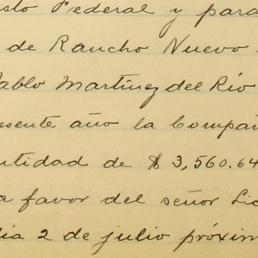 sto Federal y para
de Rancho Nuevo
Pablo Martínez del Río
esente año la Compañ
ntidad de $3,560.64
a favor del señor Lic
día 2 de julio próxim